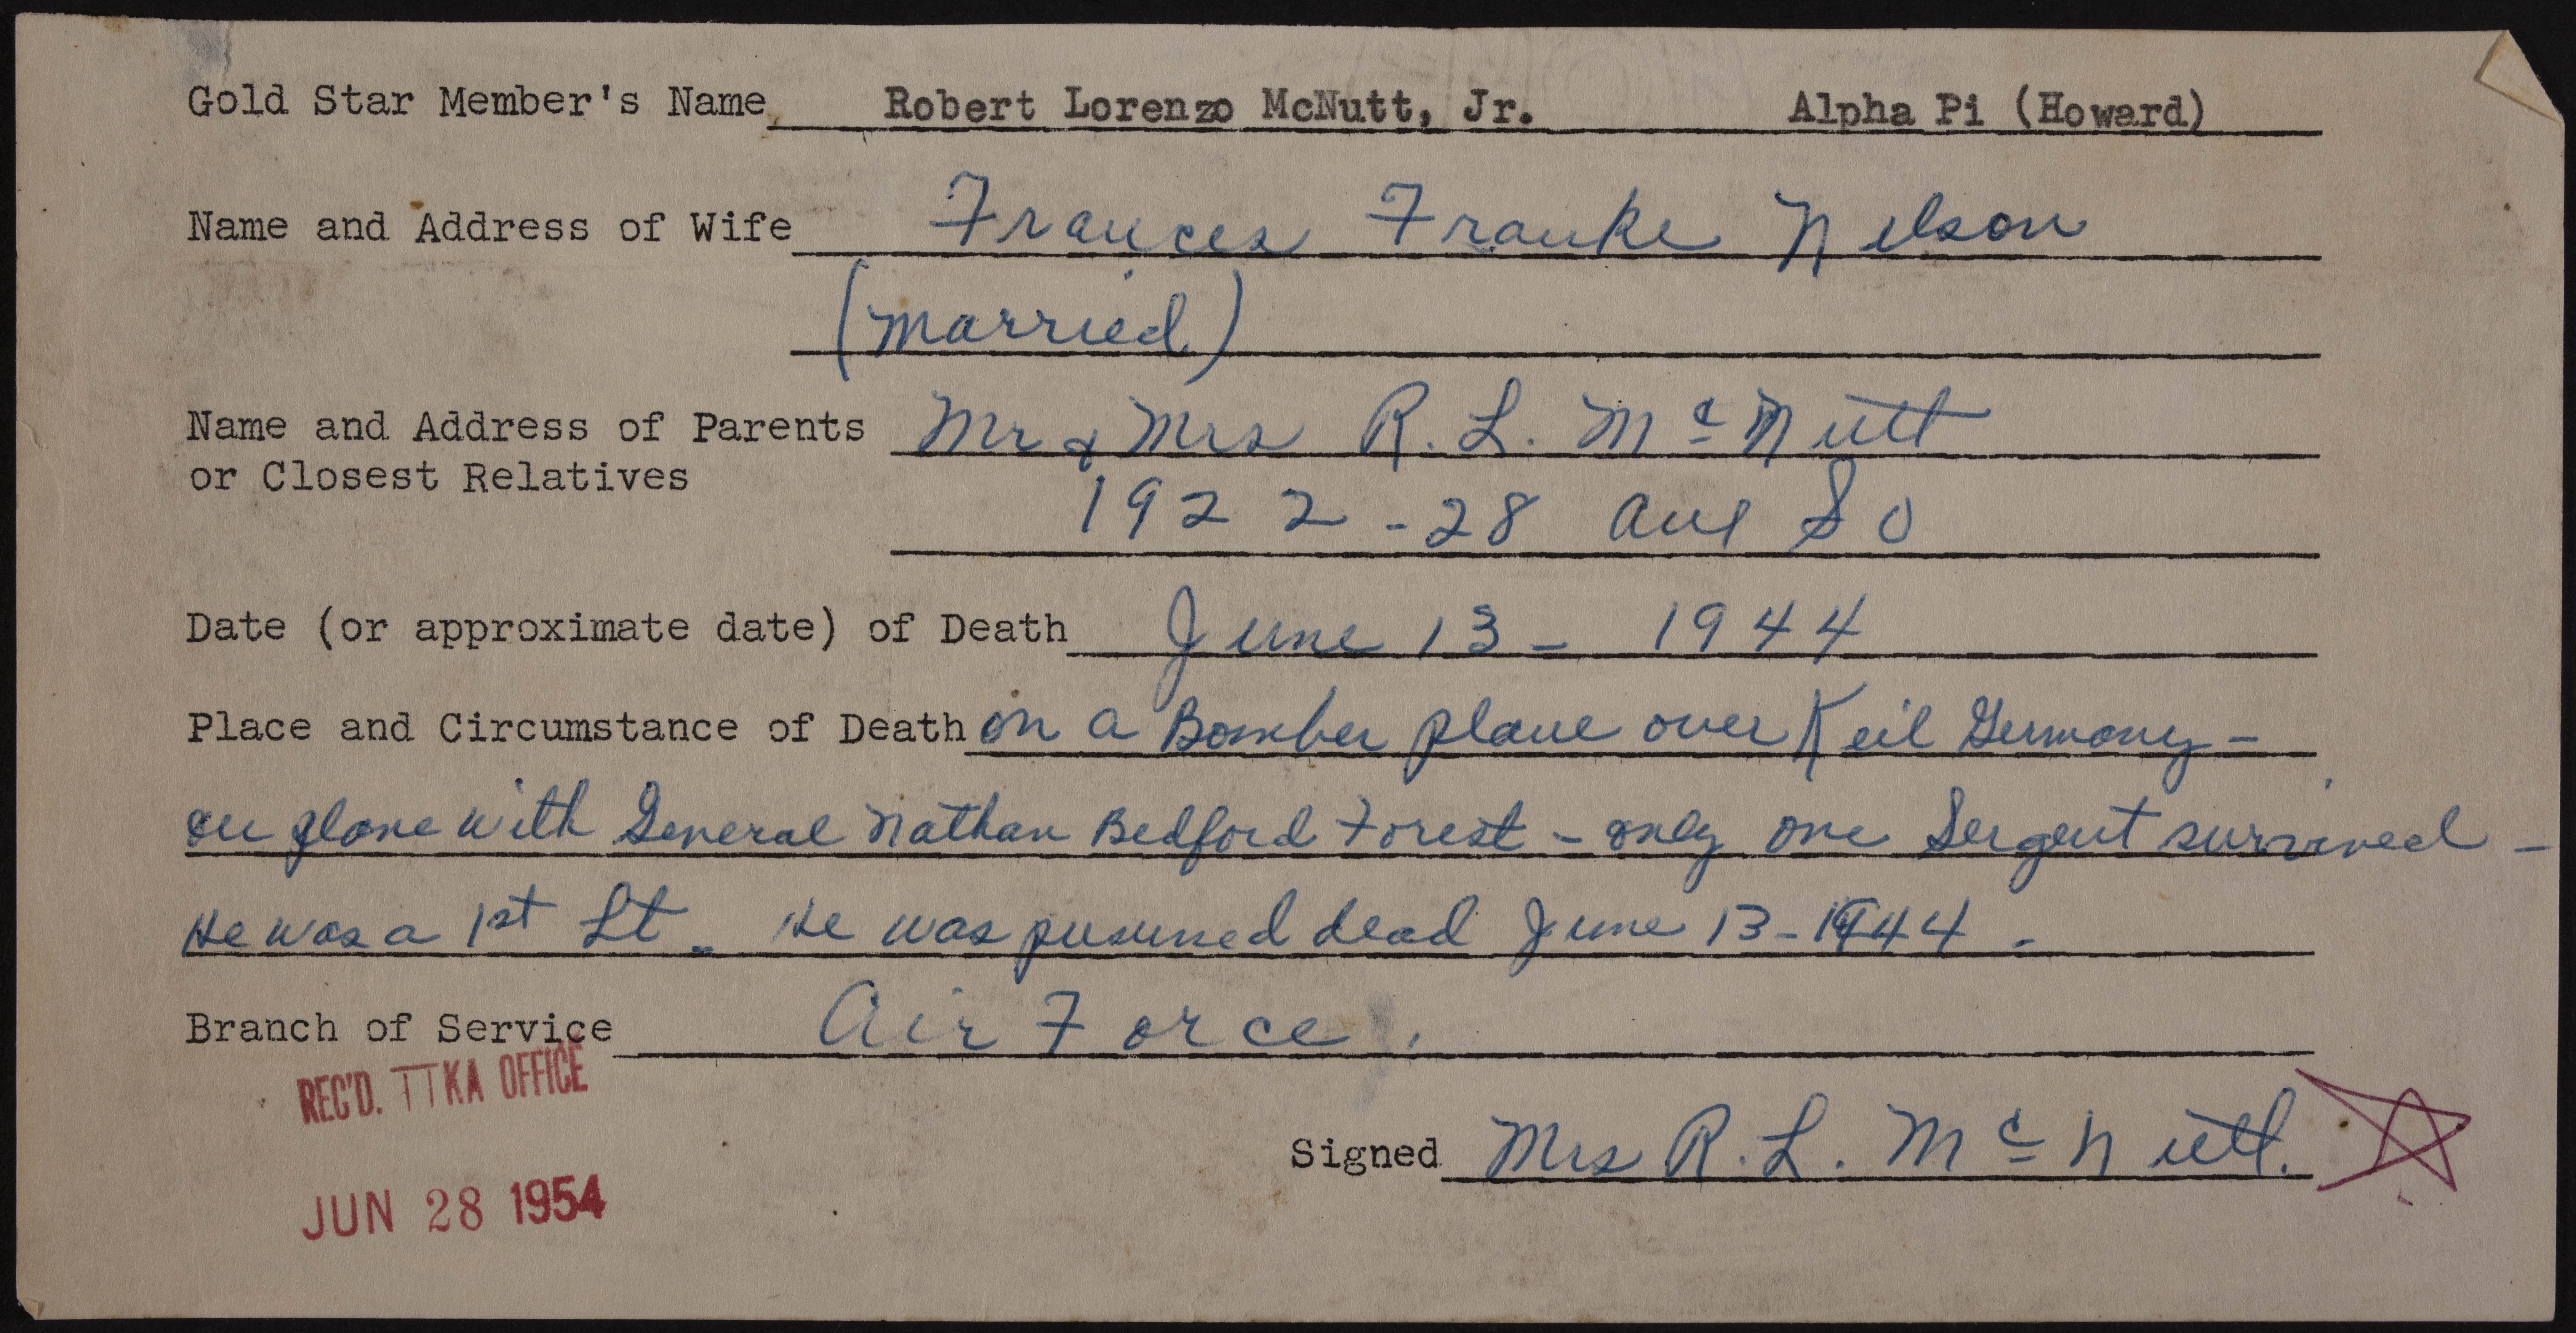 Gold Star Member's Name Robert Lorenzo McNutt, Jr. Alpha Pi (Howard)
Name and Address of Wife Frances Franke Nelson
(married)
Name and Address of Parents Mr & Mrs R. L. McNutt
or Closest Relatives
1922 - 28 Ave So
Date (or approximate date) of Death June 13 - 1944
Place and Circumstance of Death on a Bomber plane over Keil Germany -
on plane with General Nathan Bedford Forest - only one Sergent survived -
He was a 1st Lt. He was pusumed dead June 13 - 1944.
Branch of Service Air Force.
REC'D. ΠKA OFFICE
Signed Mrs R. L. McNutt.
JUN 28 1954